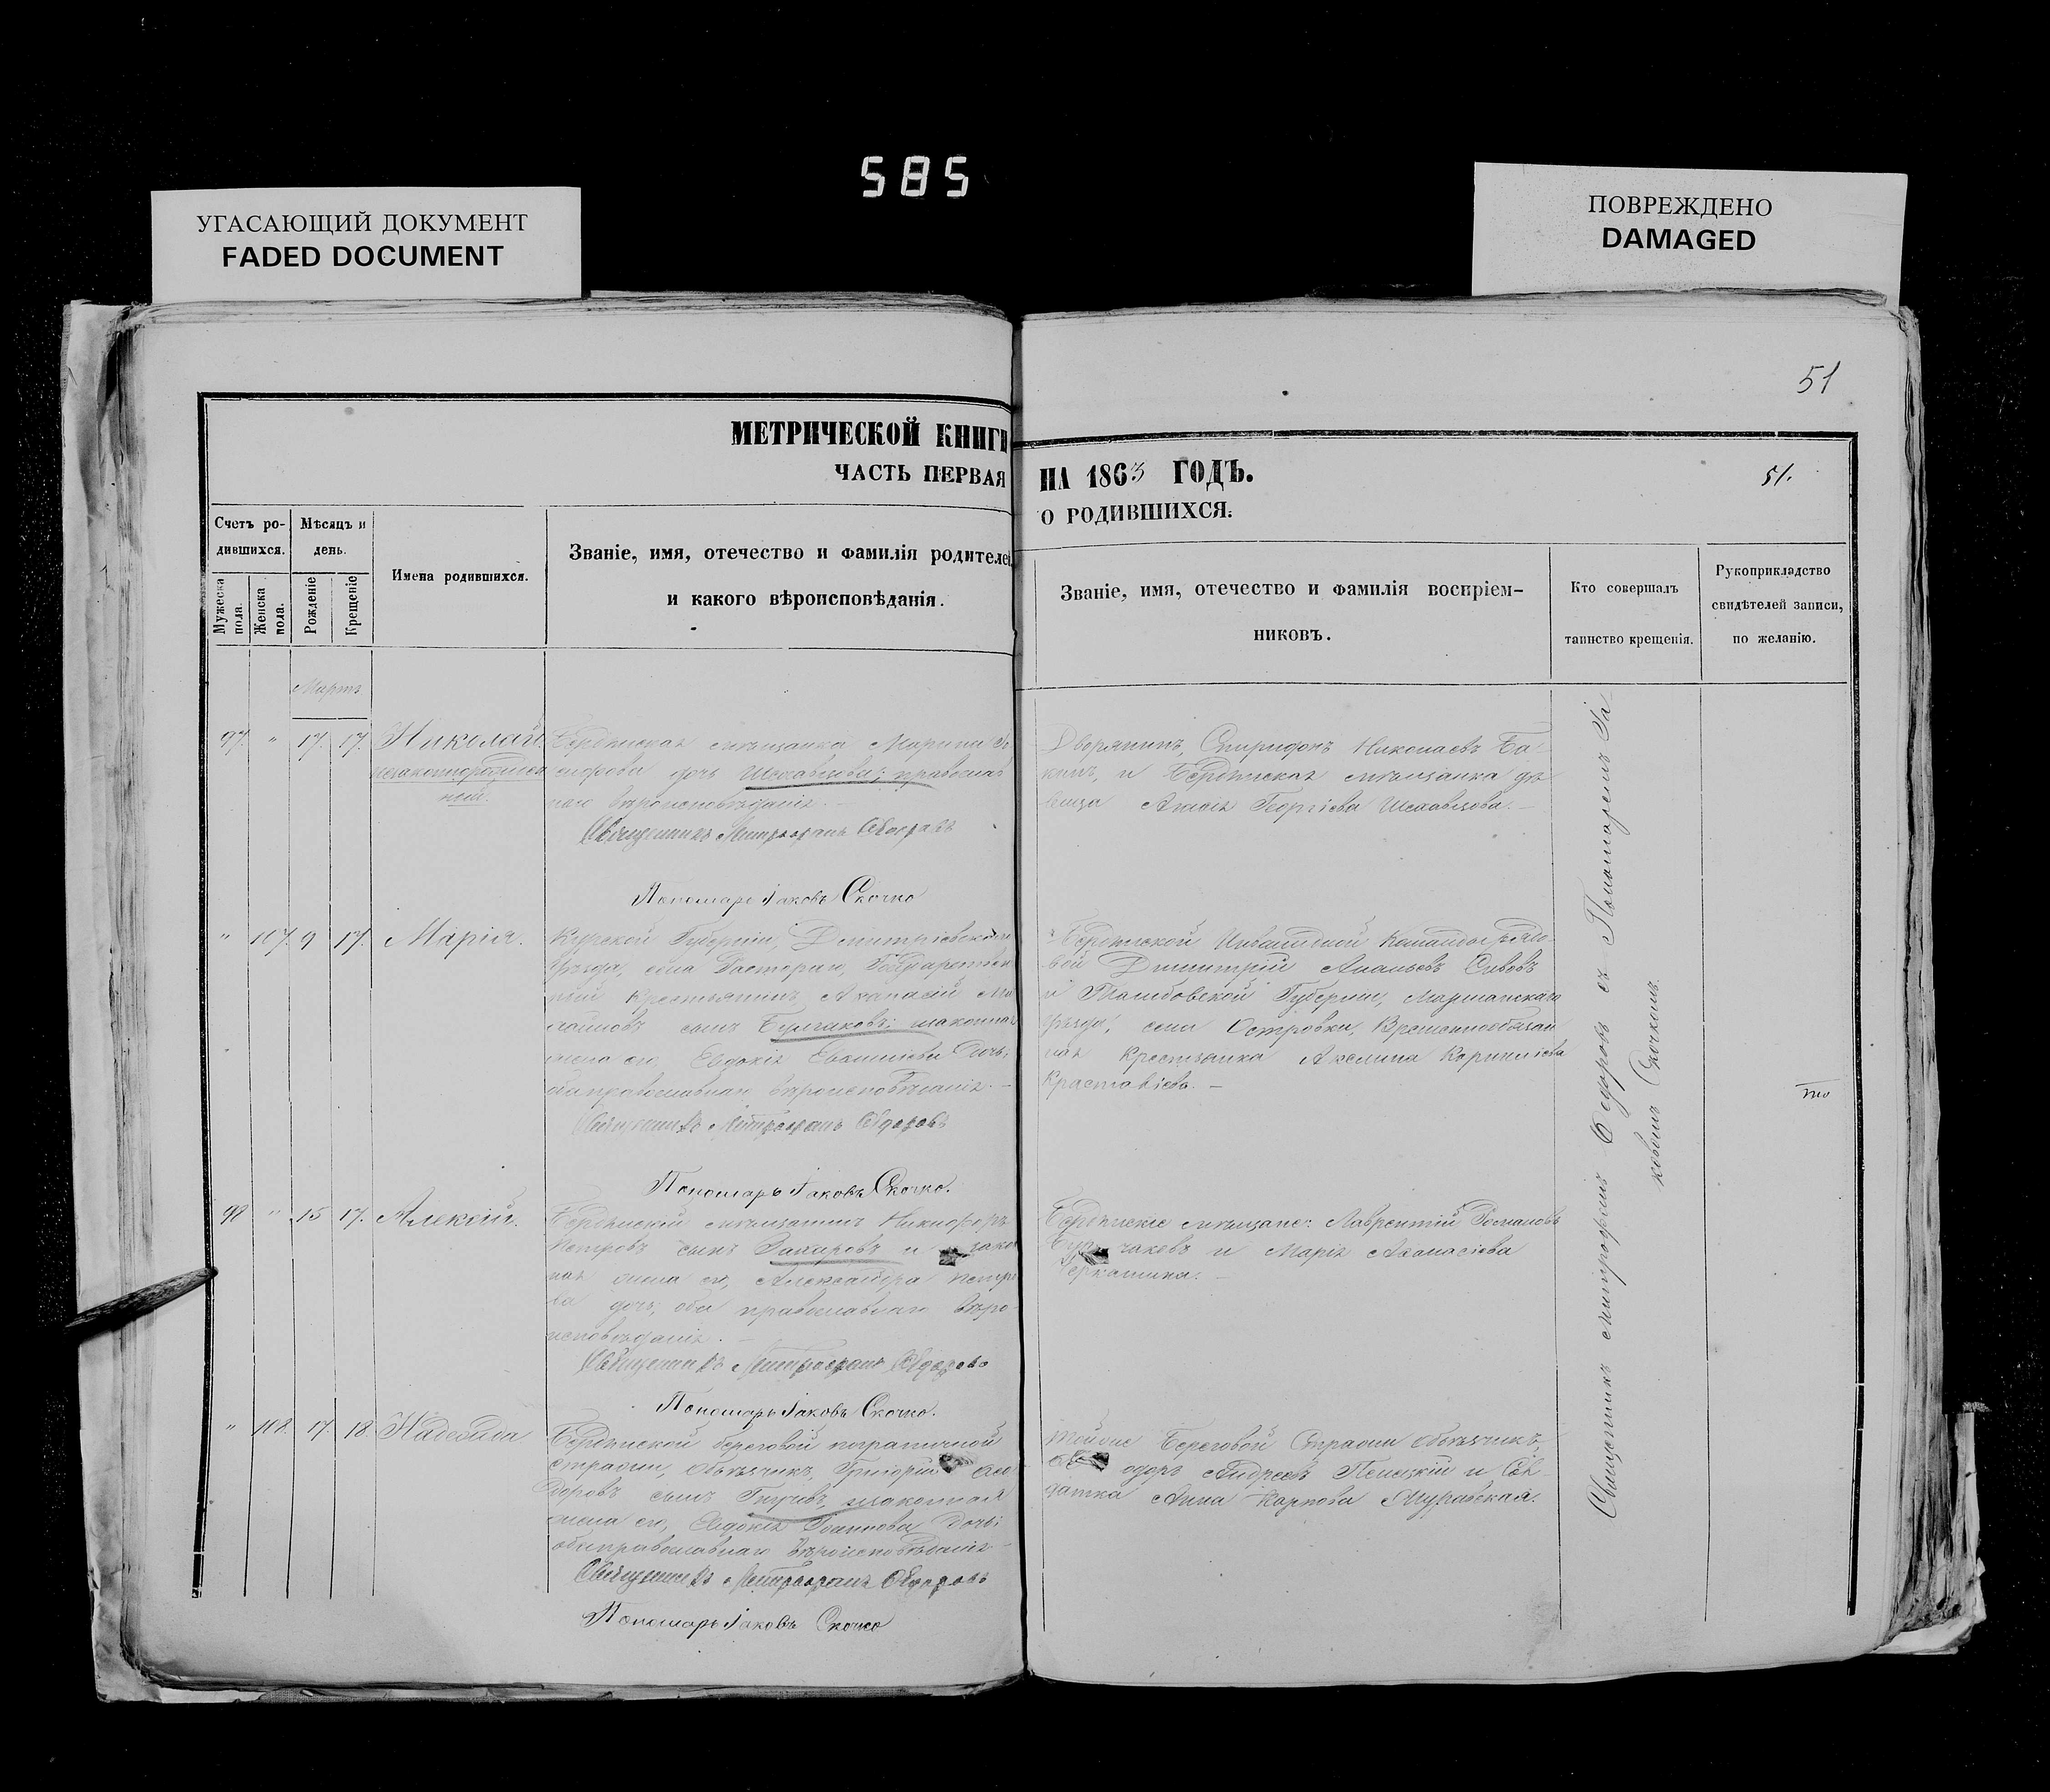 585
УГАСАЮЩИЙ ДОКУМЕНТ
FADED DOCUMENT
ПОВРЕЖДЕНО
DAMAGED
51
МЕТРИЧЕСКОЙ КНИГИ
ЧАСТЬ ПЕРВАЯ
НА 1863 ГОДЪ.
51.
О РОДИВШИХСЯ.
Счетъ ро-
дившихся.
Мужеска пола.
Женска пола.
Мѣсяцъ и
день.
Рожденіе
Крещеніе
Имена родившихся.
Званіе, имя, отечество и фамилія родителей
и какого вѣроисповѣданія.
Званіе, имя, отечество и фамилія воспріем-
никовъ.
Кто совершалъ
таинство крещенія.
Рукоприкладство
свидѣтелей записи,
по желанію.
Мартъ
97. " 17. 17. Николай
незаконнорожден
ный.
Бердянская мѣщанка Марина
дочь православ
наго вѣроисповѣданія.
Священникъ Митрофанъ Ѳедоровъ
Пономарь Іаковъ Скочко
Дворянинъ, Спиридонъ Николаевъ Ба
кинъ, и Бердянская мѣщанка дѣ
вица Георгіева
" 107. 9 17. Марія.
Курской Губерніи, Дмитріевскаго
Уѣзда, села Государствен
ный Крестьянинъ, Аѳанасій
сынъ Булгаковъ; законная
жена его, Евдокія дочь;
оба православнаго вѣроисповѣданія.
Священникъ Митрофанъ Ѳедоровъ
Пономарь Іаковъ Скочко.
Бердянской Инвалидной Команды рядо-
вой Димитрій Ананьевъ Сивовъ
и Тамбовской Губерніи, Моршанскаго
Уѣзда, села Островки, Временнообязан
ная Крестьянка Акелина Корниліева
98 " 15 17. Алексій.
Бердянскій мѣщанинъ Никифоръ
Петровъ сынъ и закон
ная жена его, Александра Петро
ва дочь; оба православнаго вѣро
исповѣданія.
Священникъ Митрофанъ Ѳедоровъ
Пономарь Іаковъ Скочко.
Бердянскіе мѣщане: Лаврентій Романовъ
и Марія Аѳанасіева
" 108. 17. 18. Надежда
Бердянской береговой пограничной
стражи, Объѣзчикъ, Григорій Ѳео
доровъ сынъ законная
жена его, Евдокія Іоаннова дочь;
оба православнаго вѣроисповѣданія
Священникъ Митрофанъ Ѳедоровъ
Пономарь Іаковъ Скочко
Тойже Береговой Стражи Объѣзчикъ,
Андреевъ и Сол
датка Анна Карпова Муравская.
Священникъ Митрофанъ Ѳедоровъ съ Пономаремъ Іа
ковомъ Скочкомъ.